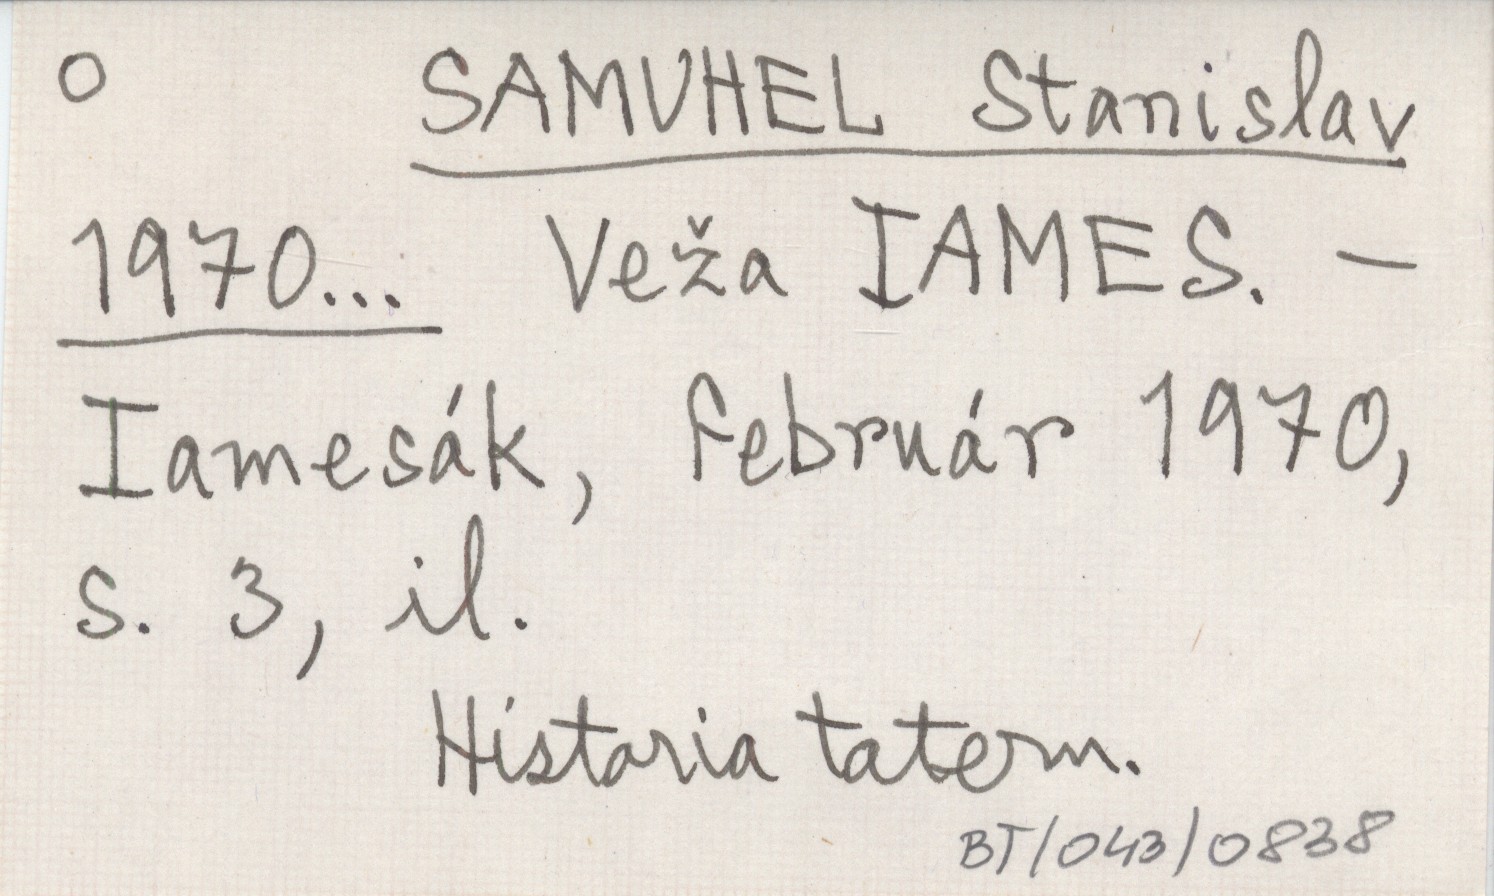 O SAMUHEL Stanislav
1970... Veža IAMES. –
Iamesák, február 1970,
s. 3, il.
Historia taterm.
BT/043/0838